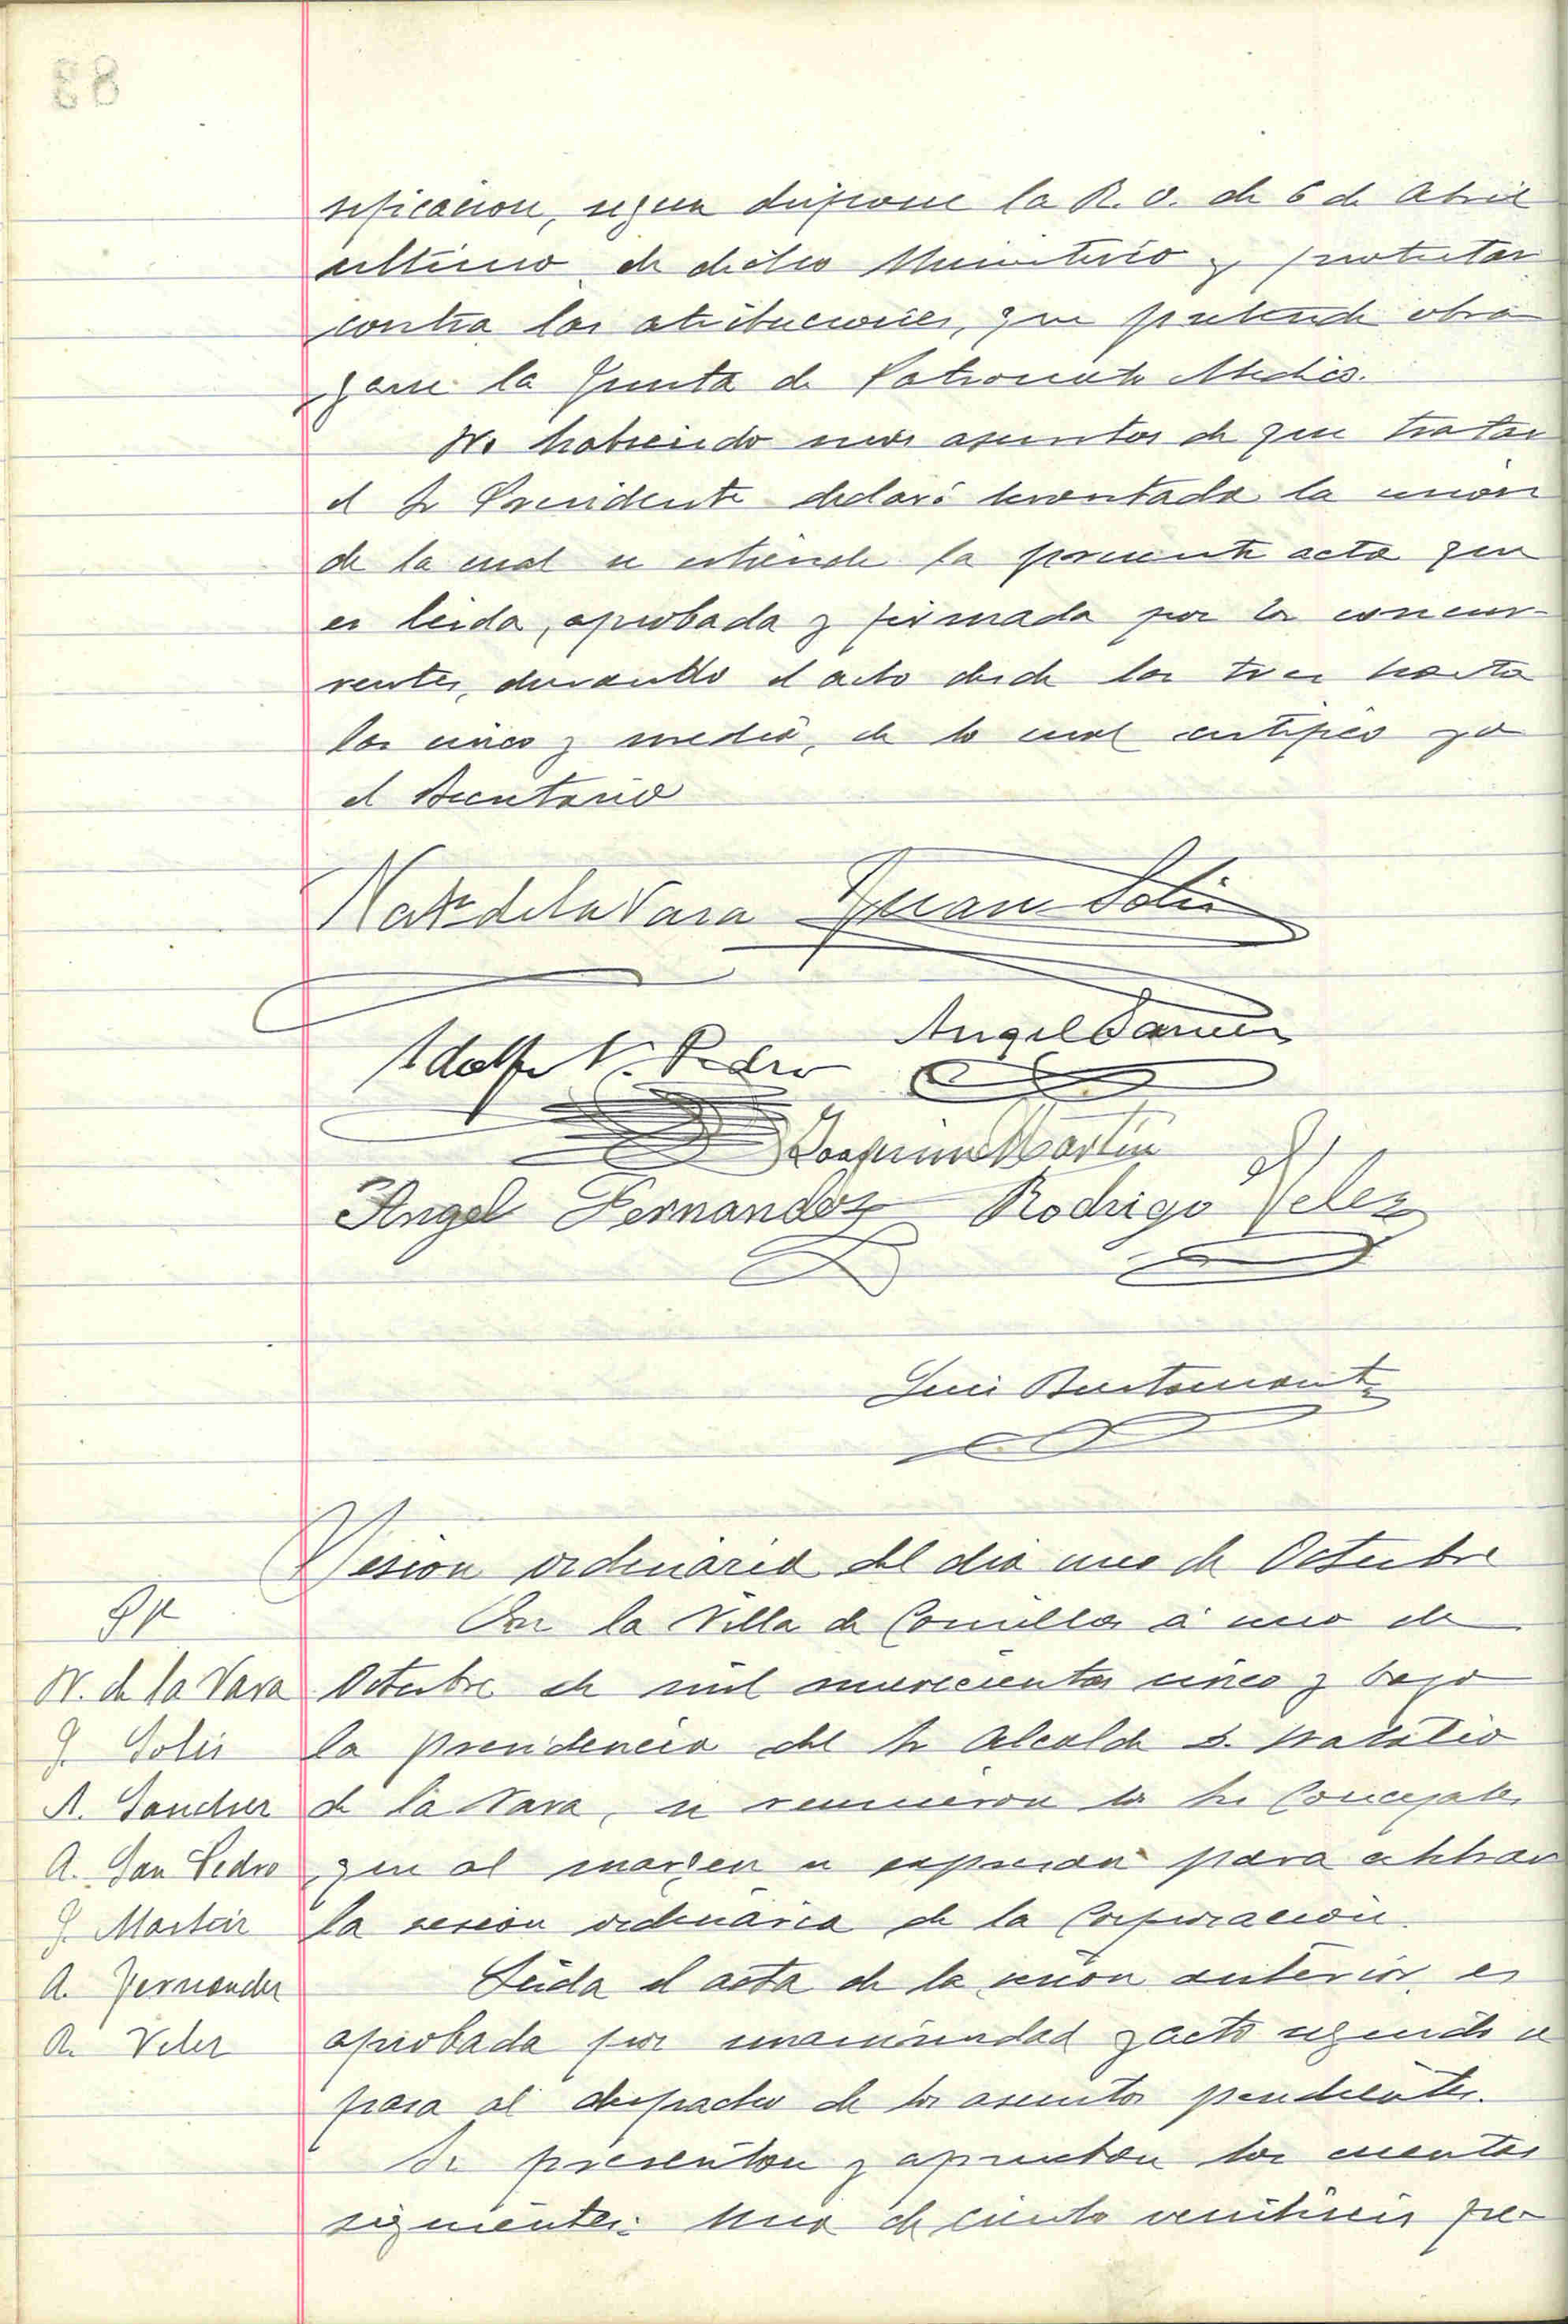 sificacion, segun dispone la R. O. de 6 de Abril
ultimo de dicho Ministerio y protestar
contra las atribuciones, que pretende otor
garse la Junta de Patronato Medico.
No habiendo mas asuntos de que tratar
el Sr Presidente declaró levantada la sesion
de la cual se extiende la presente acta que
es leida, aprobada y firmada por los concur-
rentes, durando el acto desde las tres hasta
las cinco y media, de lo cual certifico yo
el Secretario
Nat. de la Vara Juan Solis
Angel Sanchez
Adolfo S. Pedro
Joaquin Martin
Angel Fernandez Rodrigo Velez
Luis Bustamante
Sesion ordinaria del dia uno de Octubre
Sres
N. de la Vara
J. Solis
A. Sanchez
A. San Pedro
J. Martin
A. Fernandez
R. Velez
En la Villa de Comillas á uno de
Octubre de mil novecientos cinco y bajo
la presidencia del Sr Alcalde D. Natalio
de la Vara, se reunieron los Sres Concejales
que al margen se expresan para celebrar
la sesion ordinaria de la Corporacion.
Leida el acta de la sesion anterior, es
aprobada por unanimidad y acto seguido se
pasa al despacho de los asuntos pendientes.
Se presentan y aprueban las cuentas
siguientes: Una de ciento veintiseis pe-